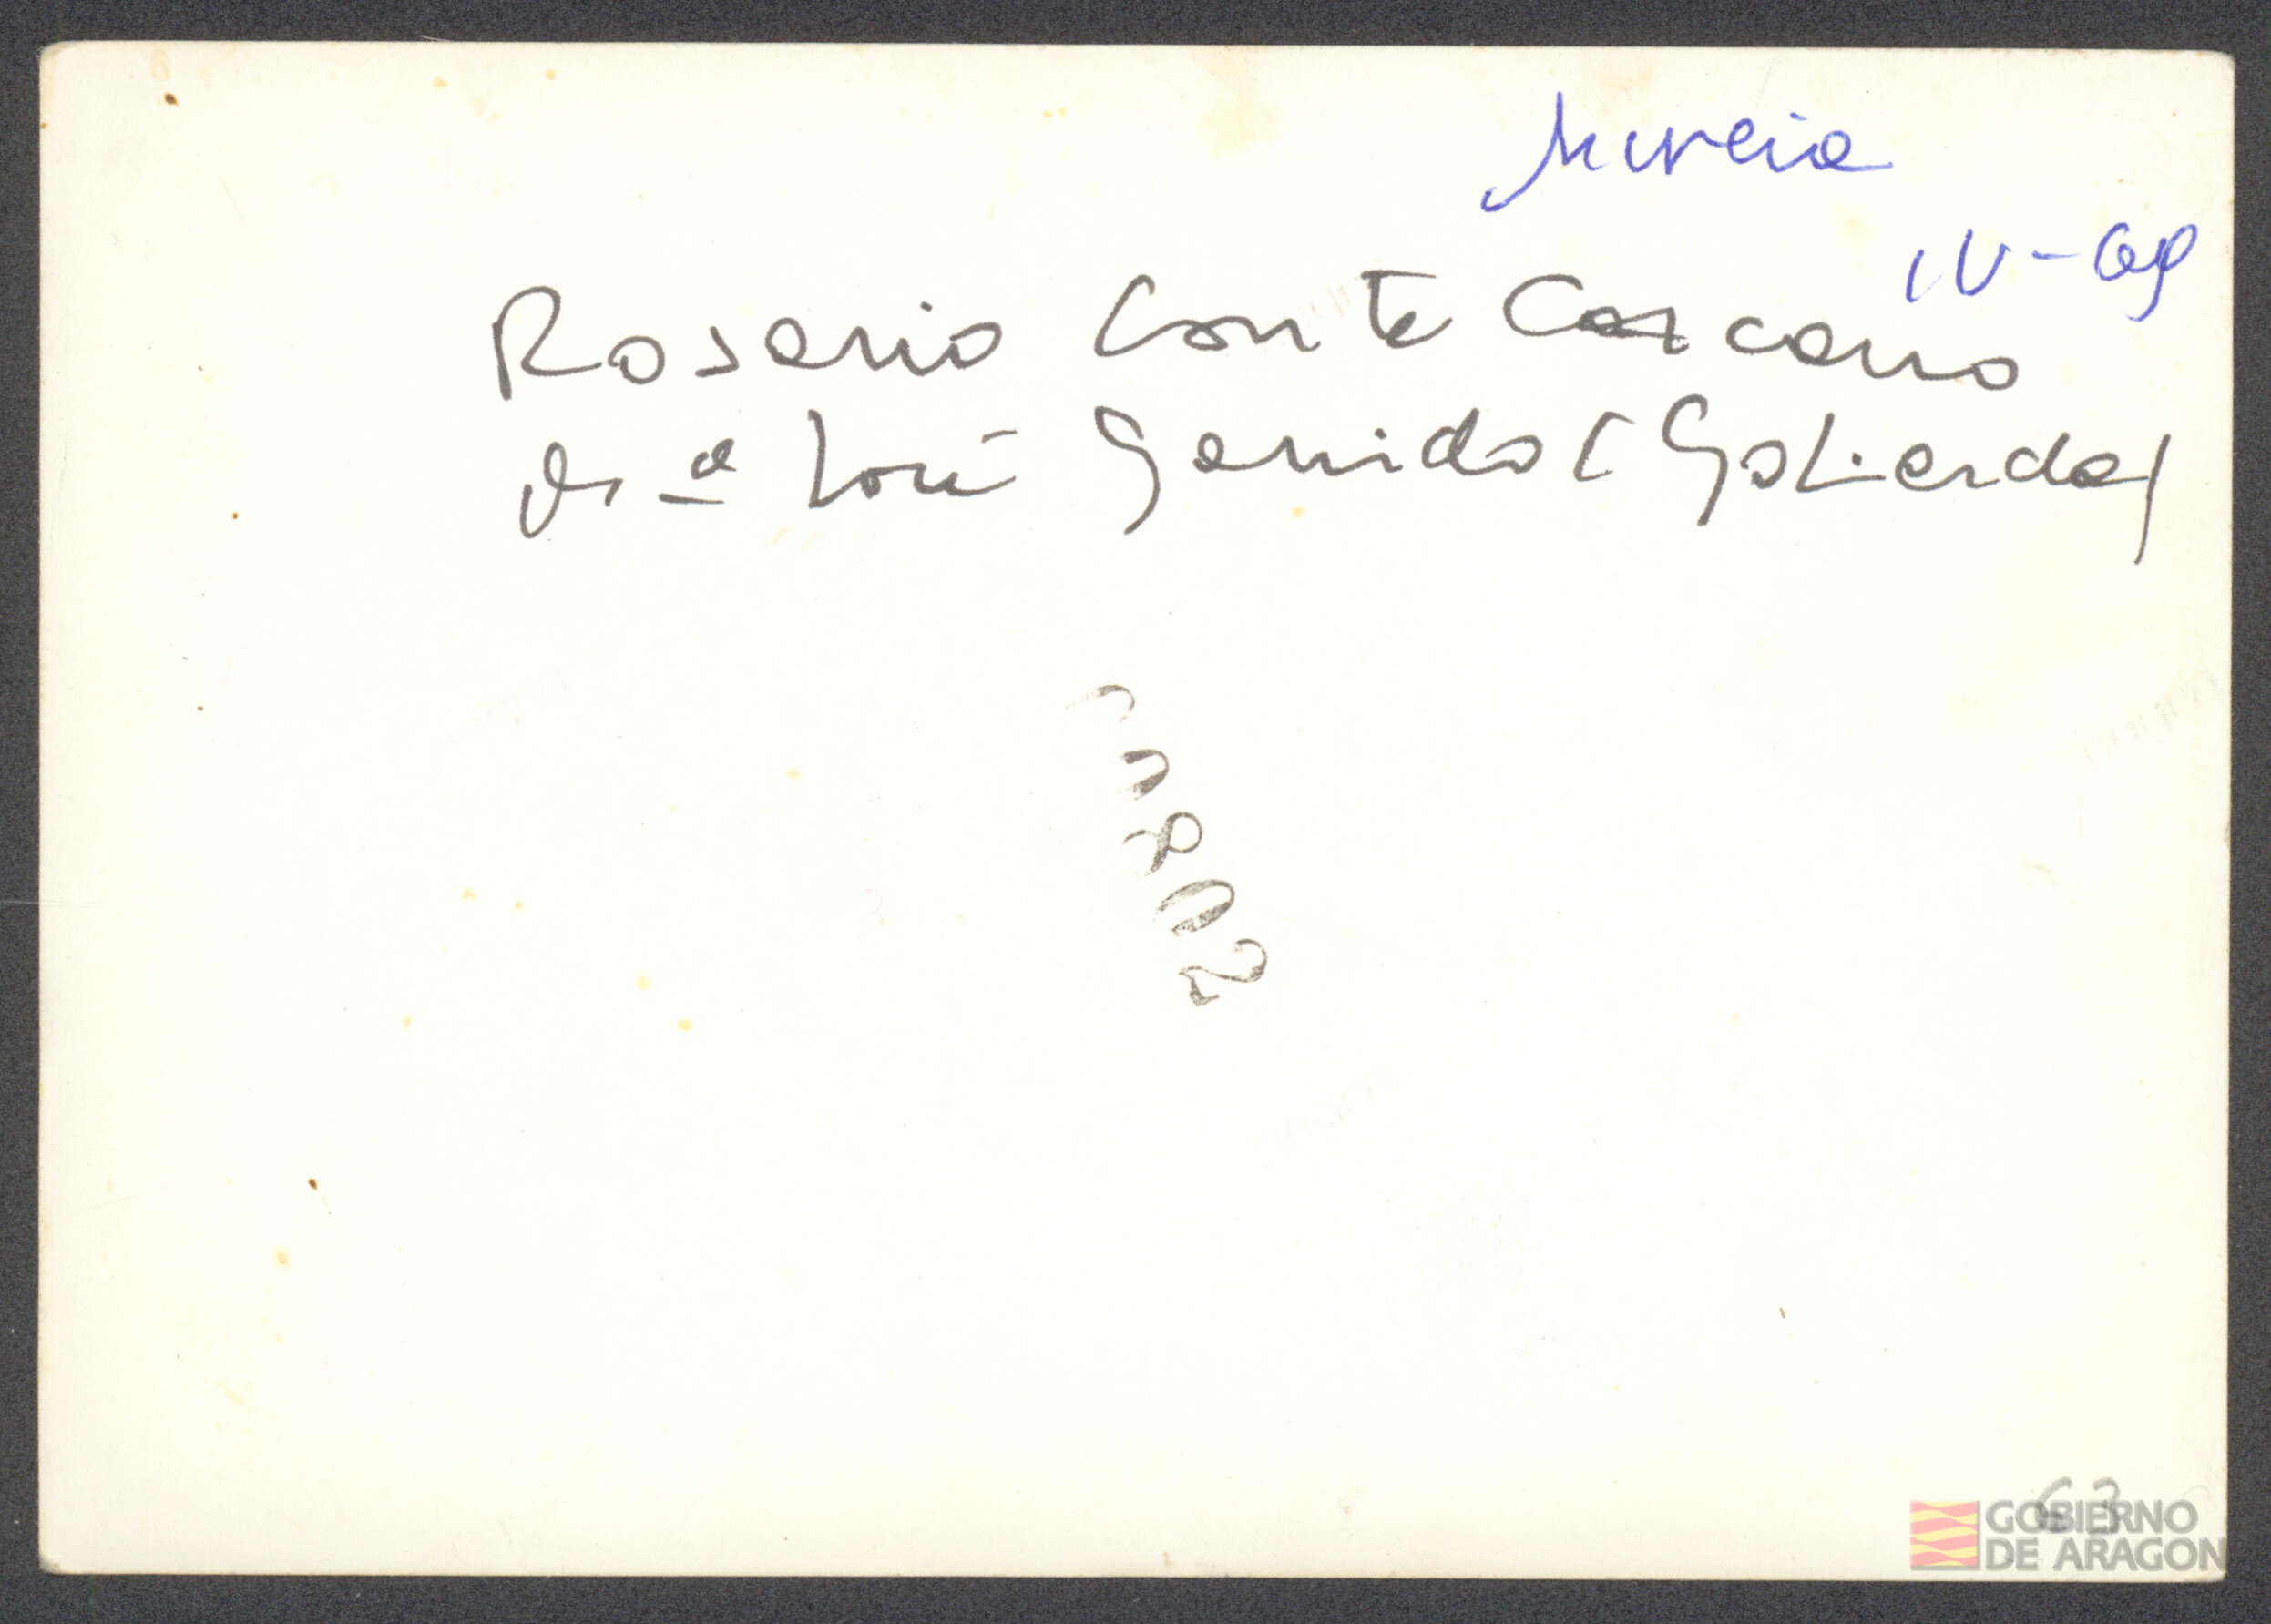 Murcia
IV-69
Rosario Conte Cascano
José Garrido (Gobierda)
802
63
GOBIERNO
DE ARAGON